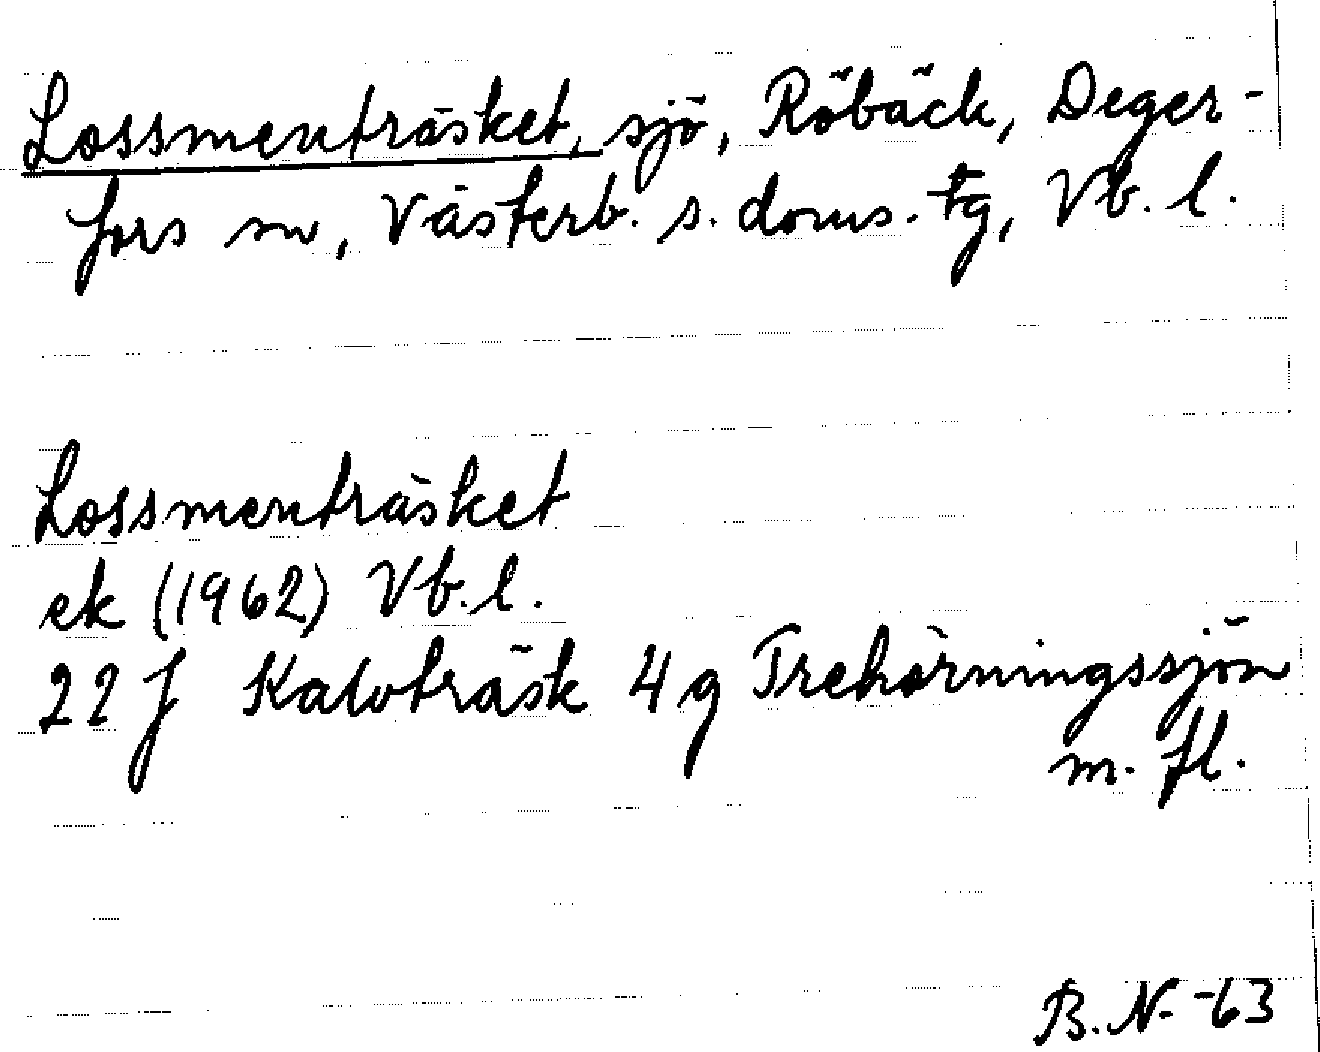 Lossmenträsket, sjö, Röbäck, Deger-
fors sn, Västerb. s. doms. tg, Vb. l.
Lossmenträsket
ek (1962) Vb. l.
22 J Kalvträsk 4 g Trehörningssjön
m. fl.
B. N. -63